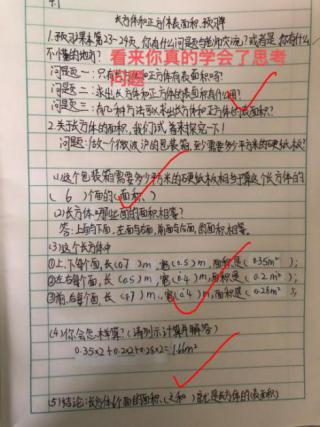 长方体和正方体表面积预习单
1.预习课本第23-24页,你有什么问题与老师交流?或者是,你有什么
不懂的地方?
看来你真的学会了思考
问题
问题一:只有长方体和正方体有表面积吗?
问题二:求出长方体和正方体的表面积有什么用?
问题三:有几种方法求出长方体和正方体的表面积?
2.关于长方体的面积,我们试着来探究一下!
问题:做一个微波炉的包装箱,至少需要多少平方米的硬纸板?
(1)这个包装箱需要多少平方米的硬纸板,相当于算这个长方体的
( 6 )个面的(面积、)
(2)长方体哪些面的面积相等?
答:上面与下面,左面与右面,前面与后面,的面积相等.
(3)这个长方体中
①上、下每个面,长(0.7)m,宽(0.5)m,面积是(0.35m²);
②左右每个面,长(0.5)m,宽(0.4)m,面积是(0.2m²);
③前、后每个面,长(0.7)m,宽(0.4)m,面积是(0.28m²);
(4)你会怎样算?(请列示计算并解答)
0.35x2+0.2x2+0.28x2=1.66m²
(5)结论:长方体6个面的面积(之和)就是长方体的(表面积)